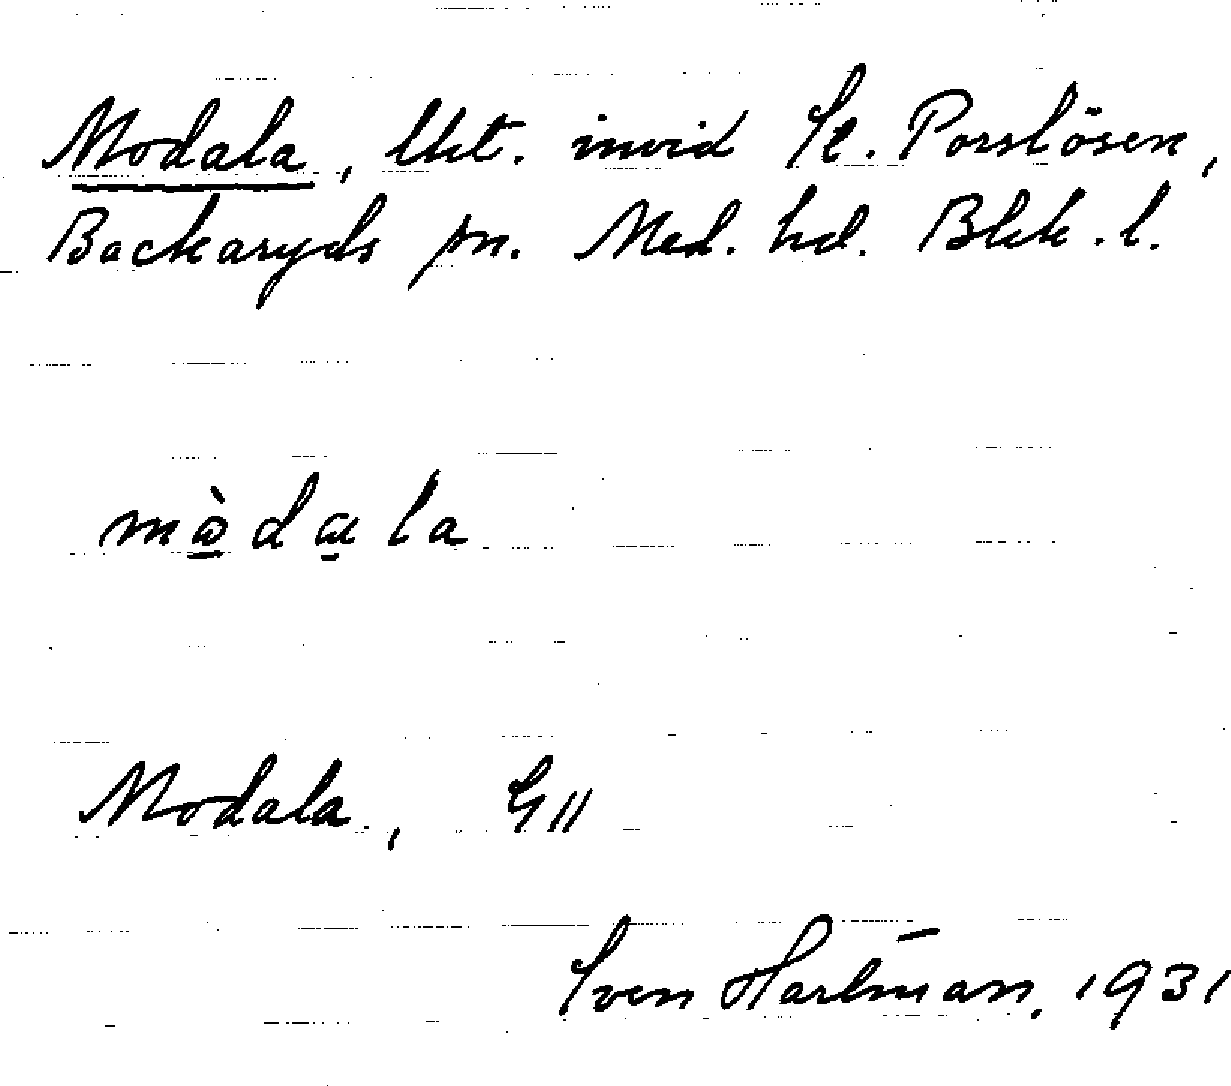 Modala, lkt. invid St. Porslösen,
Backaryds sn. Med. hd. Blek. l.
mòdala
Modala, G11
Sven Hartman. 1931